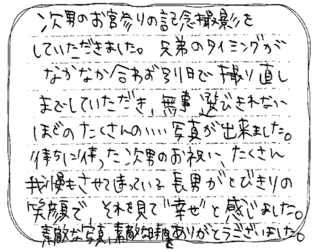 次男のお宮参りの記念撮影を
していただきました。兄弟のタイミングが
なかなか合わず別日で撮り直し
までしていただき、無事選びきれない
ほどのたくさんのいい写真が出来ました。
待ちに待った次男のお祝い、たくさん
我慢をさせてしまっている長男がとびきりの
笑顔で、それを見て"幸せ"と感じました。
素敵な写真、素敵な時間ありがとうございました。